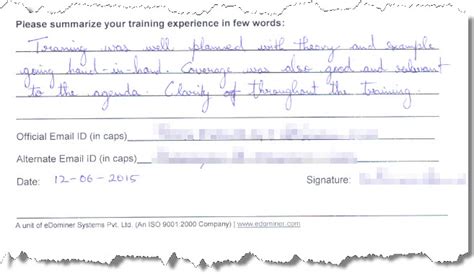 Please summarize your training experience in few words:
Training was well planned with theory and example
going hand-in-hand. Coverage was also good and relevant
to the agenda. Clarity of throughout the training.
Official Email ID (in caps)
Alternate Email ID (in caps)
Date: 12-06-2015 Signature:
A unit of eDominer Systems Pvt. Ltd. (An ISO 9001:2000 Company) | www.edominer.com